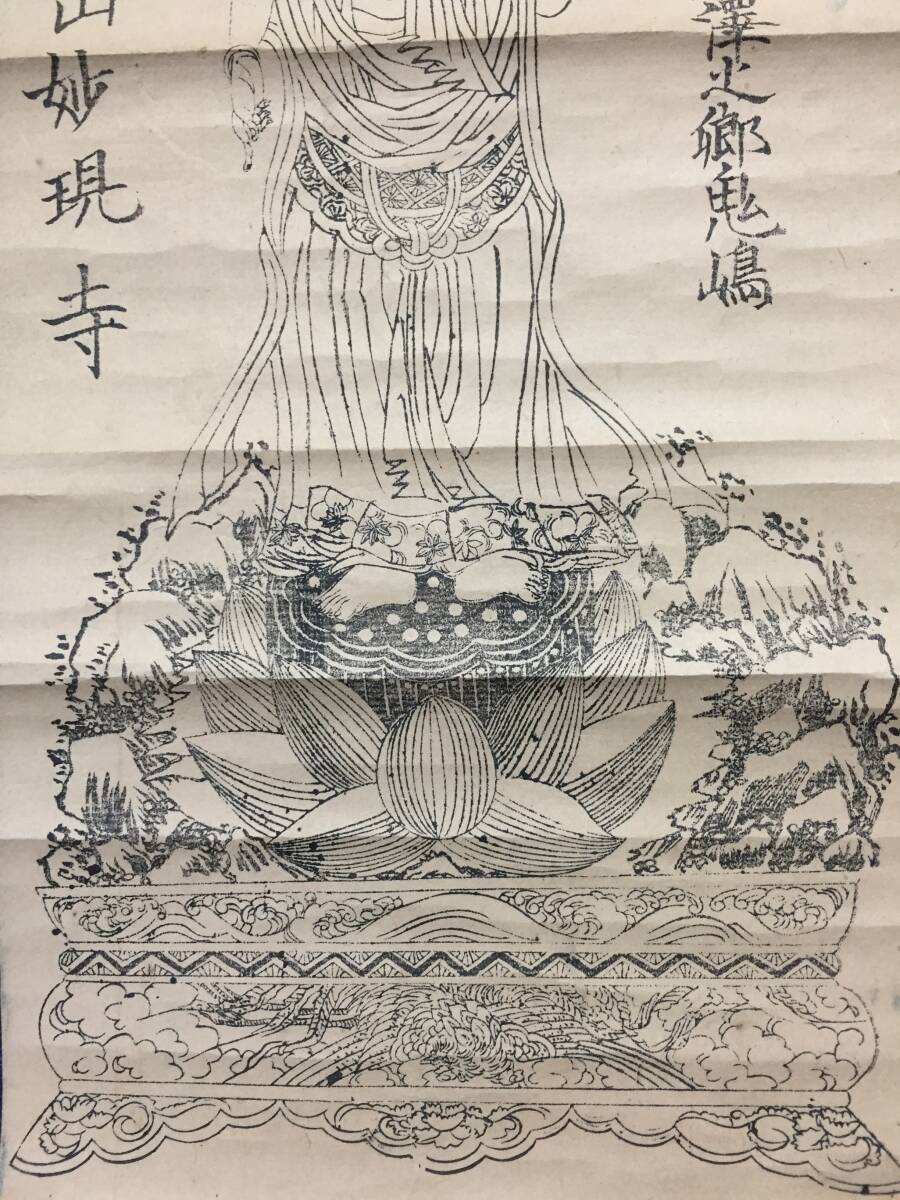 澤之郷鬼嶋
山妙現寺